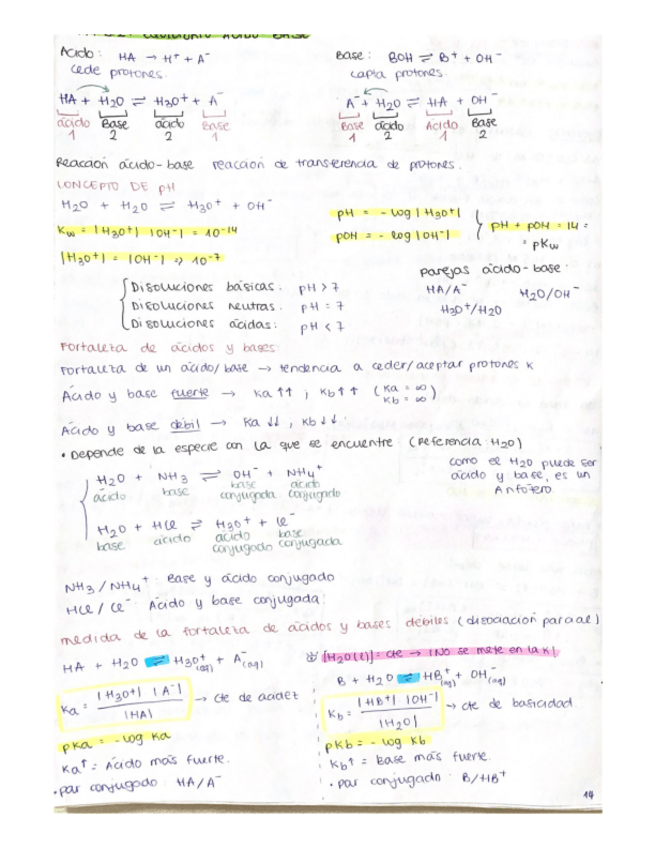 EQUILIBRIO ÁCIDO BASE
Ácido: HA → H⁺ + A⁻
cede protones.
HA + H₂O ⇌ H₃O⁺ + A⁻
ácido Base ácido Base
1 2 2 1
Base: BOH ⇌ B⁺ + OH⁻
capta protones.
A⁻ + H₂O ⇌ HA + OH⁻
Base ácido Ácido Base
1 2 1 2
Reacción ácido-base reacción de transferencia de protones.
CONCEPTO DE pH
H₂O + H₂O ⇌ H₃O⁺ + OH⁻
Kw = |H₃O⁺| |OH⁻| = 10⁻¹⁴
|H₃O⁺| = |OH⁻| => 10⁻⁷
pH = - log |H₃O⁺|
pOH = - log |OH⁻|
pH + pOH = 14 =
= pKw
Disoluciones básicas: pH > 7
Disoluciones neutras: pH = 7
Disoluciones ácidas: pH < 7
parejas ácido-base:
HA/A⁻ H₂O/OH⁻
H₃O⁺/H₂O
Fortaleza de ácidos y bases:
Fortaleza de un ácido/base → tendencia a ceder/aceptar protones K
Ácido y base fuerte → Ka ↑↑ ; Kb ↑↑ (Ka = ∞
Kb = ∞)
Ácido y base débil → Ka ↓↓, Kb ↓↓.
• Depende de la especie con la que se encuentre: (Referencia: H₂O)
H₂O + NH₃ ⇌ OH⁻ + NH₄⁺
ácido base base ácido
conjugada conjugado
H₂O + HCl ⇌ H₃O⁺ + Cl⁻
base ácido ácido base
conjugado conjugada
como el H₂O puede ser
ácido y base, es un
Anfótero.
NH₃/NH₄⁺: Base y ácido conjugado
HCl/Cl⁻: Ácido y base conjugada.
medida de la fortaleza de ácidos y bases débiles (disociación parcial)
HA + H₂O ⇌ H₃O⁺(aq) + A⁻(aq)
Ka = |H₃O⁺| |A⁻| / |HA| → cte de acidez
pKa = - log Ka
Ka↑ = Ácido más fuerte.
• par conjugado: HA/A⁻
[H₂O(l)] = cte → ¡NO se mete en la K!
B + H₂O ⇌ HB⁺(aq) + OH⁻(aq)
Kb = |HB⁺| |OH⁻| / |H₂O| → cte de basicidad.
pKb = - log Kb
Kb↑ = Base más fuerte.
• par conjugado: B/HB⁺
14